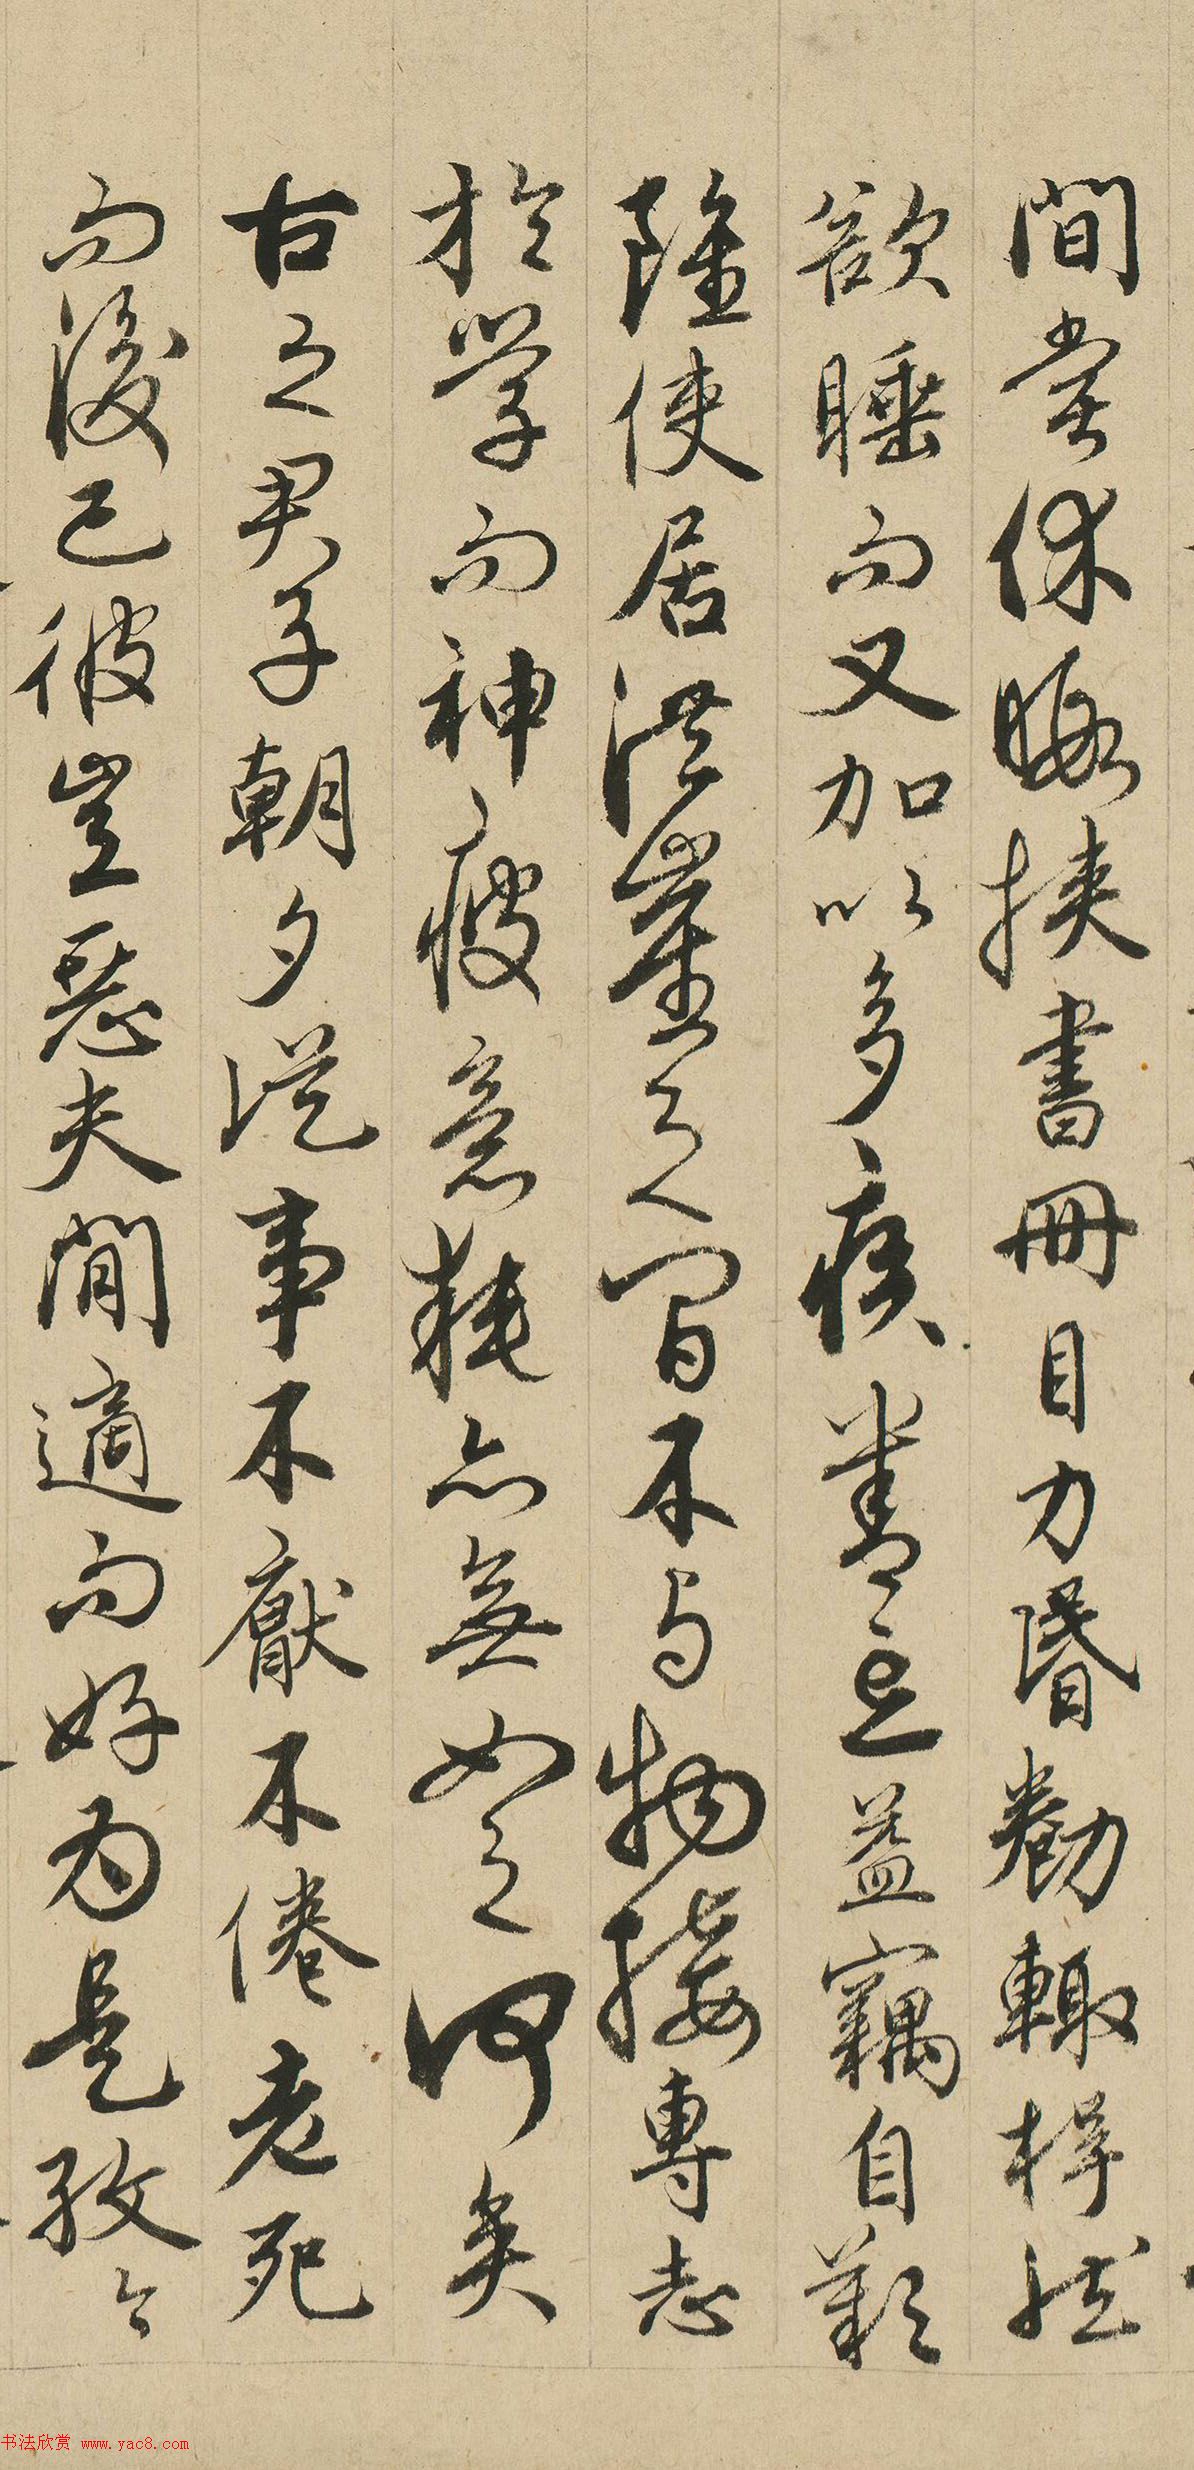 間嘗休暇挾書冊目力昏勌輒捍然
欲睡而又加以多疾善忘益竊自歎
雖使居泆崖之間不与物接專志
於學而神疲意耗亦無如之何矣
古之君子朝夕從事不厭不倦老死
而後已彼豈惡夫閒適而好为是孜々
书法欣赏 www.yac8.com